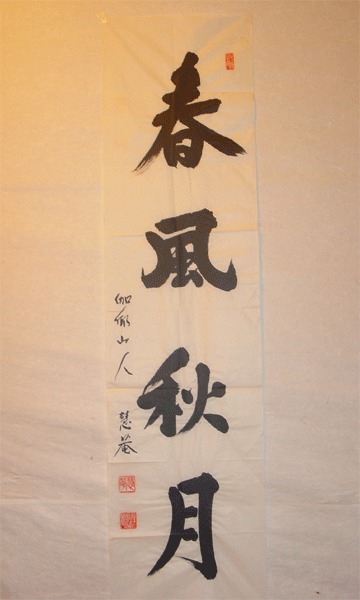 春風秋月
伽倻山人 慧菴